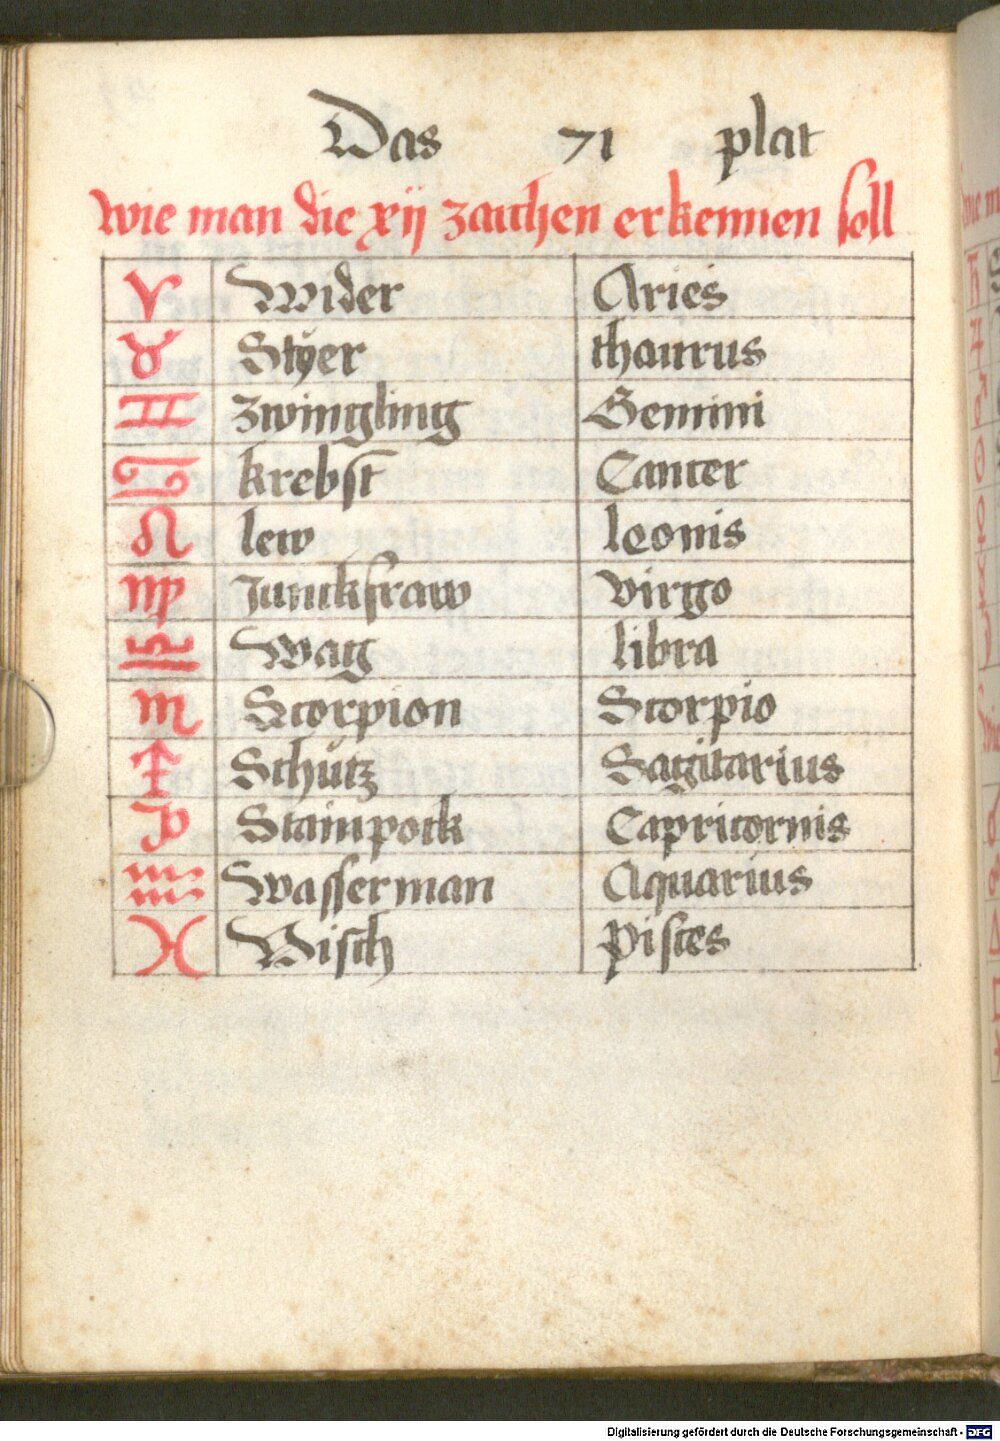 Das 71 plat
wie man die xij zaichen erkennen soll
♈ Wider Aries
♉ Styer thaurus
♊ zwingling Gemini
♋ krebst Cancer
♌ lew leonis
♍ Junckfraw virgo
♎ Wag libra
♏ Scorpion Scorpio
♐ Schütz Sagitarius
♑ Stainpock Capricornis
♒ Wasserman Aquarius
♓ Visch pisces
Digitalisierung gefördert durch die Deutsche Forschungsgemeinschaft - DFG